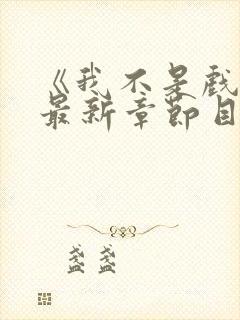 《我不是戏
最新章节目
盏盏